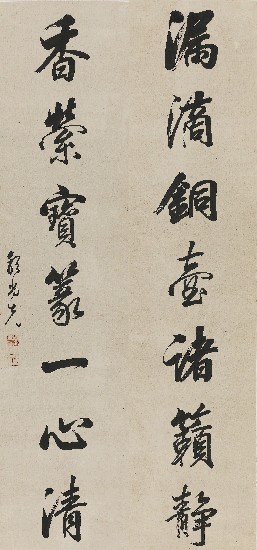 漏滴銅壺諸籟靜
香縈寶篆一心清
顧光旭